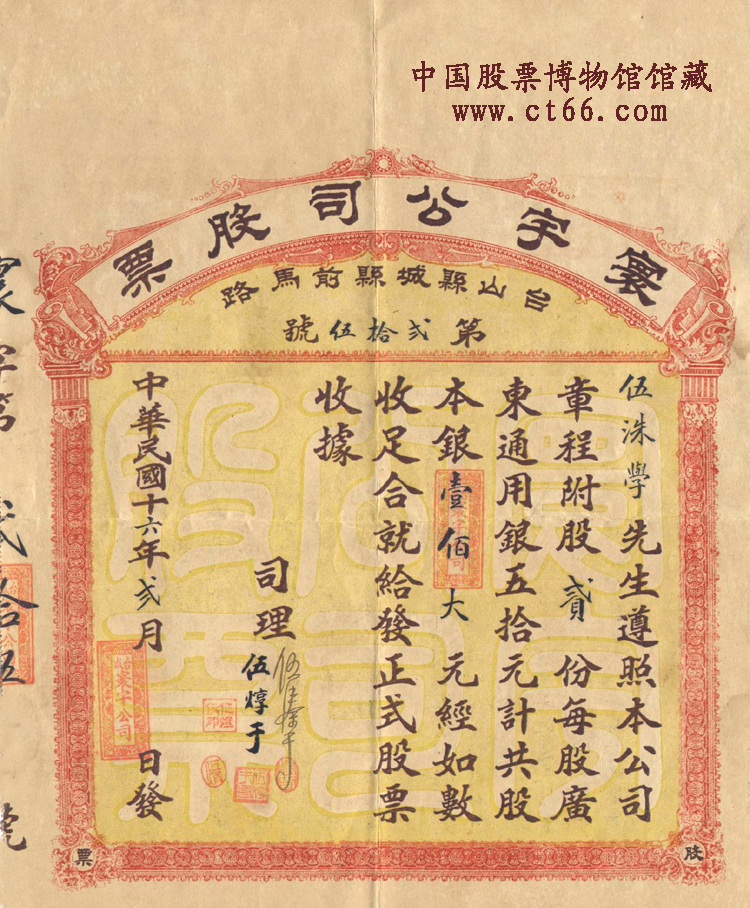 中国股票博物馆馆藏
www.ct66.com
寰宇公司股票
台山縣城縣前馬路
第弍拾伍號
伍洙學先生遵照本公司
章程附股貳份每股廣
東通用銀五拾元計共股
本銀壹佰大元經如數
收足合就給發正式股票
收據
司理伍焞于
中華民國十六年弍月日發
寰宇第弍拾伍號
股
票